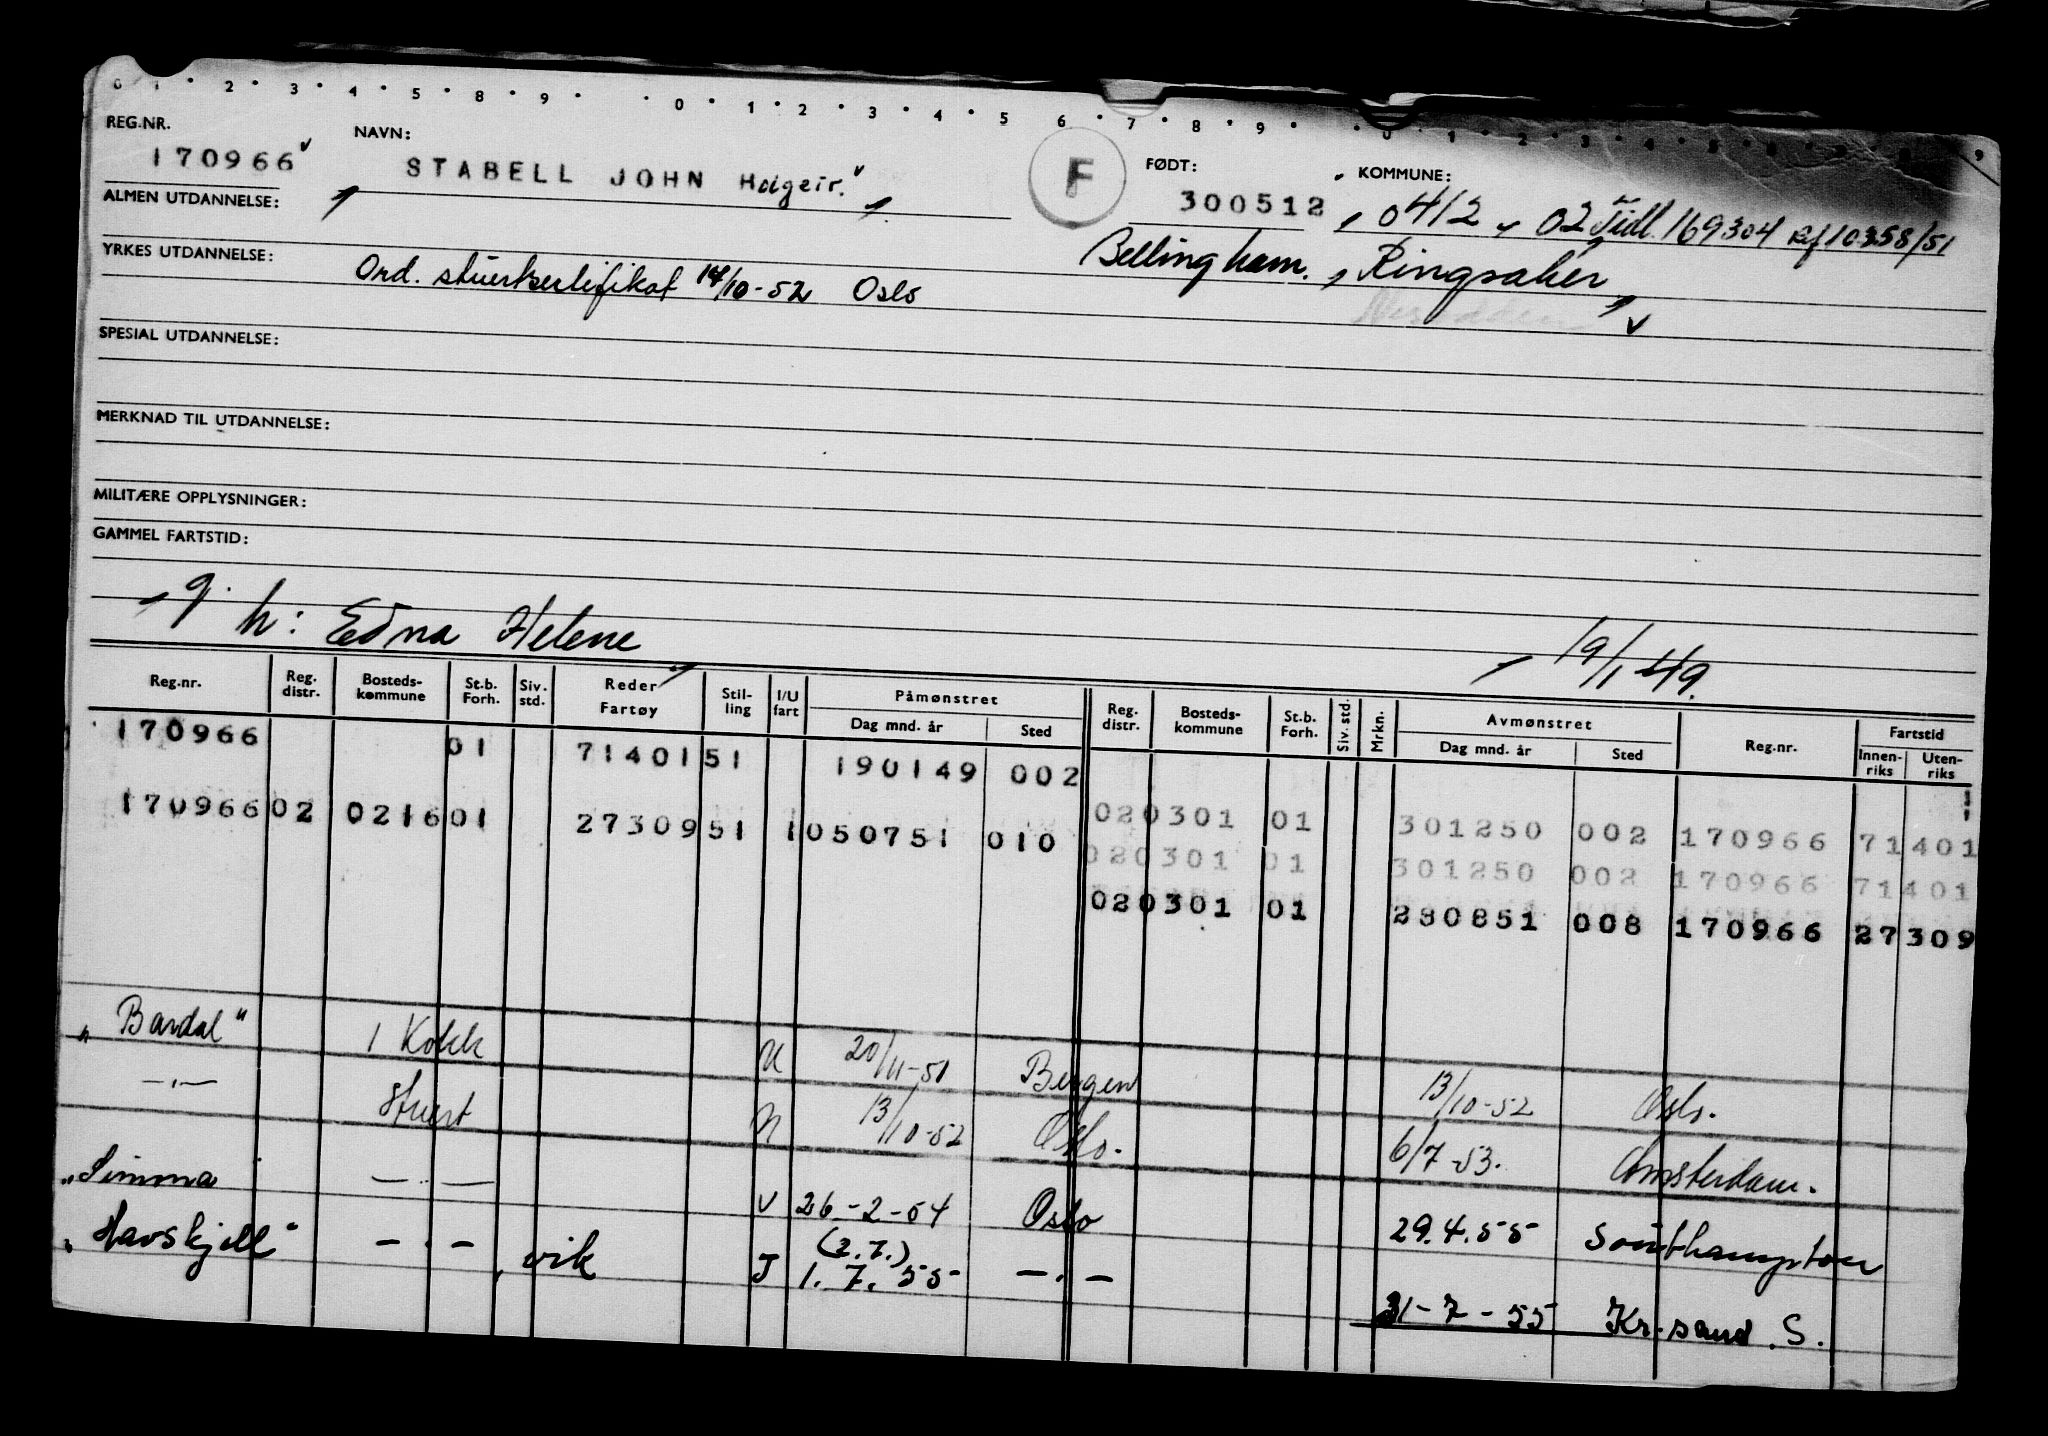 0 1 · 2 · 3 · 4 · 5 · 8 · 9 · · 0 · 1 · 2 · 3 · 4 · 5 6 · 7 · 8 · 9 · · 0 · 1 · 2 · 3 4 5 9
REG.NR. NAVN: F FØDT: KOMMUNE:
170966 STABELL JOHN Holgeir. 300512 0412 02 Tidl. 169304 Rf 10358/51
ALMEN UTDANNELSE:
Bellingham. Ringsaker
YRKES UTDANNELSE: Ord. stuertsertifikat 14/10-52 Oslo
Nesodden
SPESIAL UTDANNELSE:
MERKNAD TIL UTDANNELSE:
MILITÆRE OPPLYSNINGER:
GAMMEL FARTSTID:
g. h: Edna Helene 19/1 49.
Reg.nr. Reg. distr. Bosteds-kommune St.b. Forh. Siv. std. Reder Fartøy Stil-ling I/U fart Påmønstret Dag mnd. år Sted Reg. distr. Bosteds-kommune St.b. Forh. Siv. std. Mrkn. Avmønstret Dag mnd. år Sted Reg.nr. Fartstid Innen-riks Uten-riks
170966 01 71401 51 190149 002
020301 01 301250 002 170966 71401
170966 02 0216 01 27309 51 1 050751 010
020301 01 301250 002 170966 71401
020301 01 280851 008 170966 27309
"Bardal" 1 Kokk U 20/11-51 Bergen 13/10-52 Oslo.
—"— Stuert U 13/10-52 Oslo. 6/7-53. Amsterdam.
"Simma —.— U 26-2-54 Oslo 29.4.55 Southampton
(2.7.)
"Havskjell" —.— , vik J 1.7.55 —.— 31-7-55 Kr.sand.S.